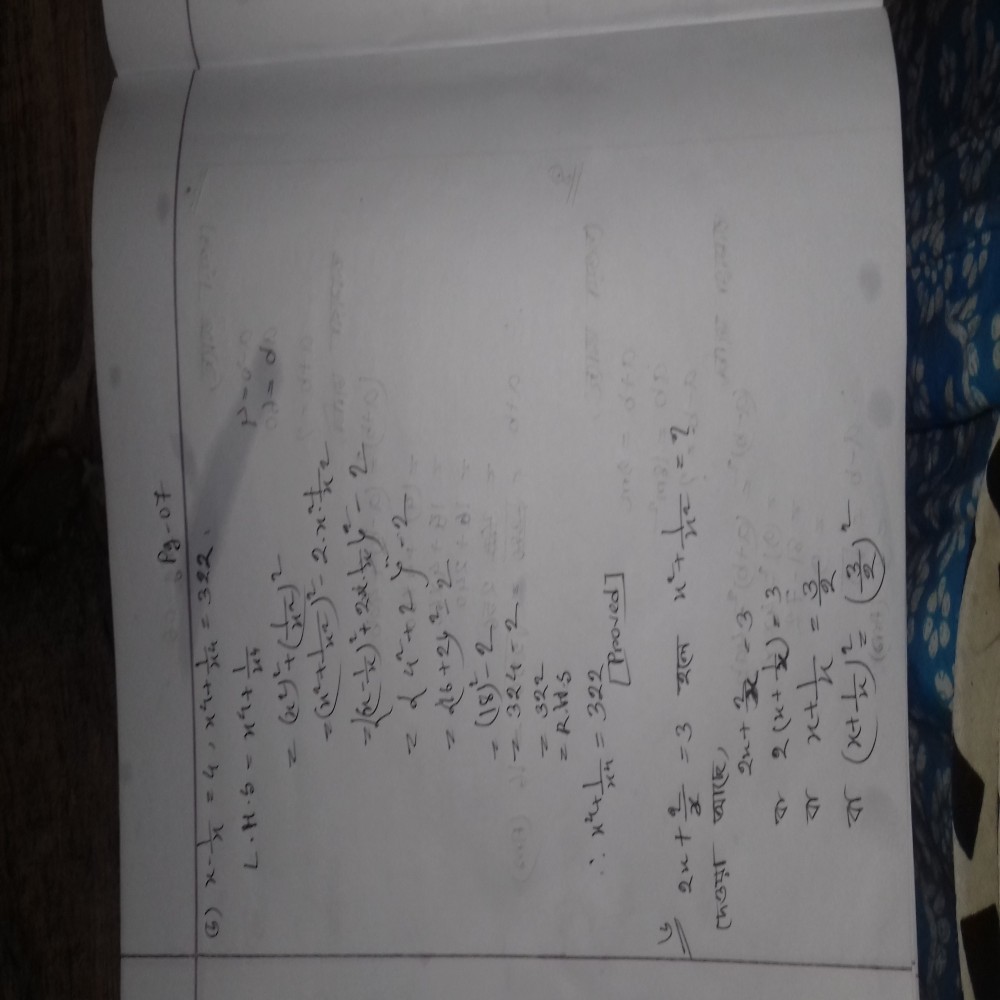 Pg-07
(5) x - 1/x = 4, x⁴ + 1/x⁴ = 322.
L.H.S = x⁴ + 1/x⁴
= (x²)² + (1/x²)²
= (x² + 1/x²)² - 2·x²·1/x²
= {(x - 1/x)² + 2x·1/x}² - 2
= {4² + 2}² - 2
= {16 + 2}² - 2
= (18)² - 2
= 324 - 2
= 322
= R.H.S
∴ x⁴ + 1/x⁴ = 322
[Proved]
2x + 2/x = 3 হলে x² + 1/x² = ?
দেওয়া আছে,
2x + 2/x = 3
বা 2(x + 1/x) = 3
বা x + 1/x = 3/2
বা (x + 1/x)² = (3/2)²